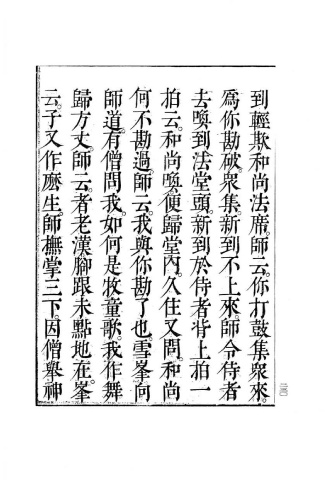 到輕欺和尚法席。師云。你打鼓集衆來。
爲你勘破。衆集。新到不上來師令侍者
去喚到法堂頭。新到於侍者背上拍一
拍云。和尚喚。便歸堂內。久住又問。和尚
何不勘過。師云。我與你勘了也。雪峯向
師道。有僧問我。如何是牧童歌。我作舞
歸方丈。師云。者老漢腳跟未點地在。峯
云。子又作麽生。師撫掌三下。因僧舉神